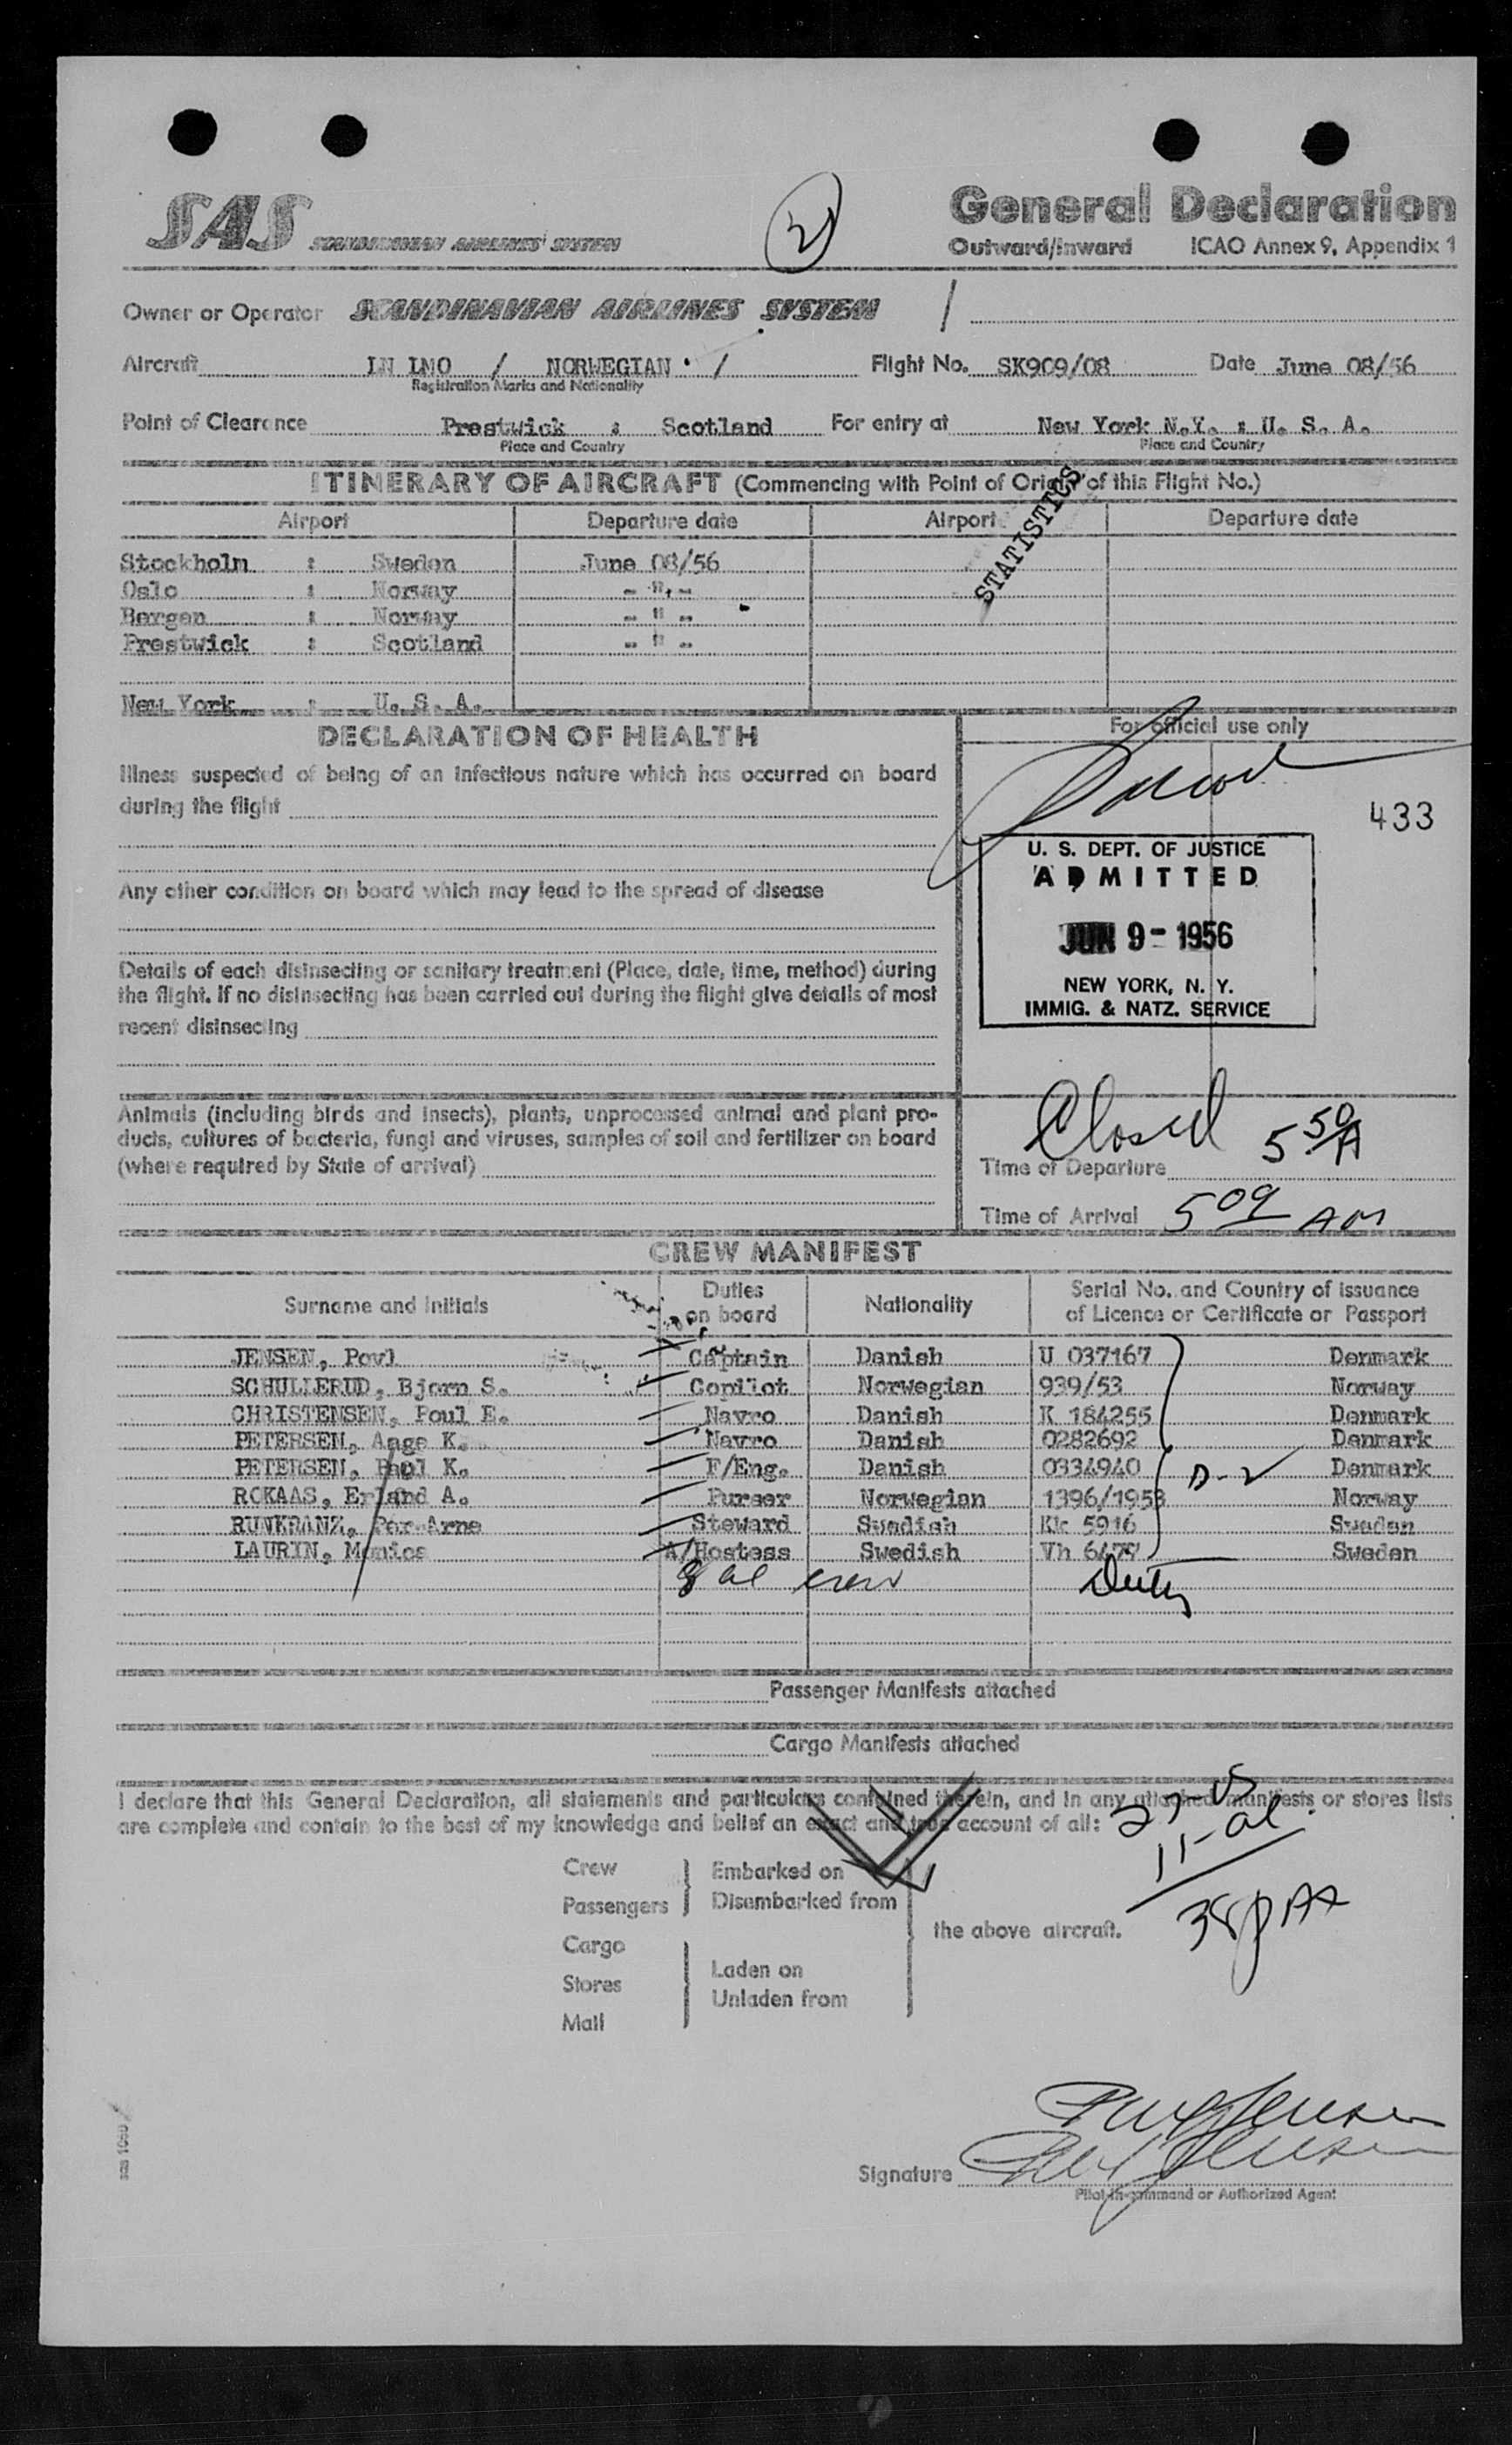 SAS SCANDINAVIAN AIRLINES SYSTEM
2
General Declaration
Outward/Inward ICAO Annex 9, Appendix 1
Owner or Operator SCANDINAVIAN AIRLINES SYSTEM /
Aircraft LN LMO / NORWEGIAN / Flight No. SK909/08 Date June 08/56
Registration Marks and Nationality
Point of Clearance Prestwick : Scotland For entry at New York N.Y. : U. S. A.
Place and Country Place and Country
ITINERARY OF AIRCRAFT (Commencing with Point of Origin of this Flight No.)
STATISTICS
Airport Departure date Airport Departure date
Stockholm : Sweden June 08/56
Oslo : Norway - " -
Bergen : Norway - " -
Prestwick : Scotland - " -
New York : U. S. A.
DECLARATION OF HEALTH
Illness suspected of being of an infectious nature which has occurred on board
during the flight
Any other condition on board which may lead to the spread of disease
Details of each disinsecting or sanitary treatment (Place, date, time, method) during
the flight. If no disinsecting has been carried out during the flight give details of most
recent disinsecting
Animals (including birds and insects), plants, unprocessed animal and plant pro-
ducts, cultures of bacteria, fungi and viruses, samples of soil and fertilizer on board
(where required by State of arrival)
For official use only
433
U. S. DEPT. OF JUSTICE
ADMITTED
JUN 9 - 1956
NEW YORK, N. Y.
IMMIG. & NATZ. SERVICE
Closed 5 50 A
Time of Departure
Time of Arrival 5 09 AM
CREW MANIFEST
Surname and Initials Duties on board Nationality Serial No. and Country of issuance of Licence or Certificate or Passport
JENSEN, Povl Captain Danish U 037167 Denmark
SCHULLERUD, Bjorn S. Copilot Norwegian 939/53 Norway
CHRISTENSEN, Poul E. Navro Danish K 184255 Denmark
PETERSEN, Aage K. Navro Danish 0282692 Denmark
PETERSEN, Paol K. F/Eng. Danish 0334940 D-2 Denmark
ROKAAS, Erland A. Purser Norwegian 1396/1953 Norway
RUNKRANZ, Per-Arne Steward Swedish Kk 5916 Sweden
LAURIN, Monica A/Hostess Swedish Vh 6477 Sweden
8 al crew
Passenger Manifests attached
Cargo Manifests attached
I declare that this General Declaration, all statements and particulars contained therein, and in any attached manifests or stores lists
are complete and contain to the best of my knowledge and belief an exact and true account of all:
27-US
11-al.
38 PAX
Crew
Passengers
Embarked on
Disembarked from
Cargo
Stores
Mail
Laden on
Unladen from
the above aircraft.
Signature
Pilot-in-command or Authorized Agent